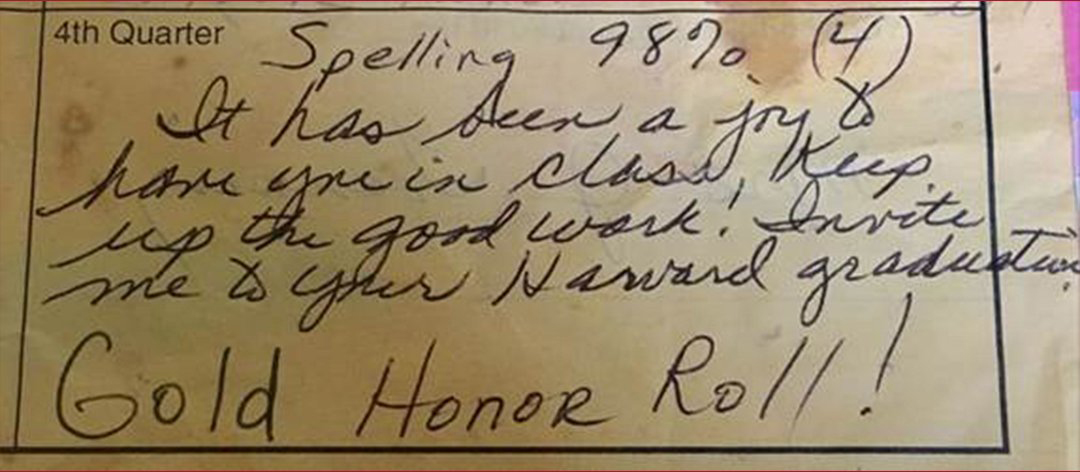 4th Quarter Spelling 98% (4)
It has been a joy to
have you in class! Keep
up the good work! Invite
me to your Harvard graduation
Gold Honor Roll!